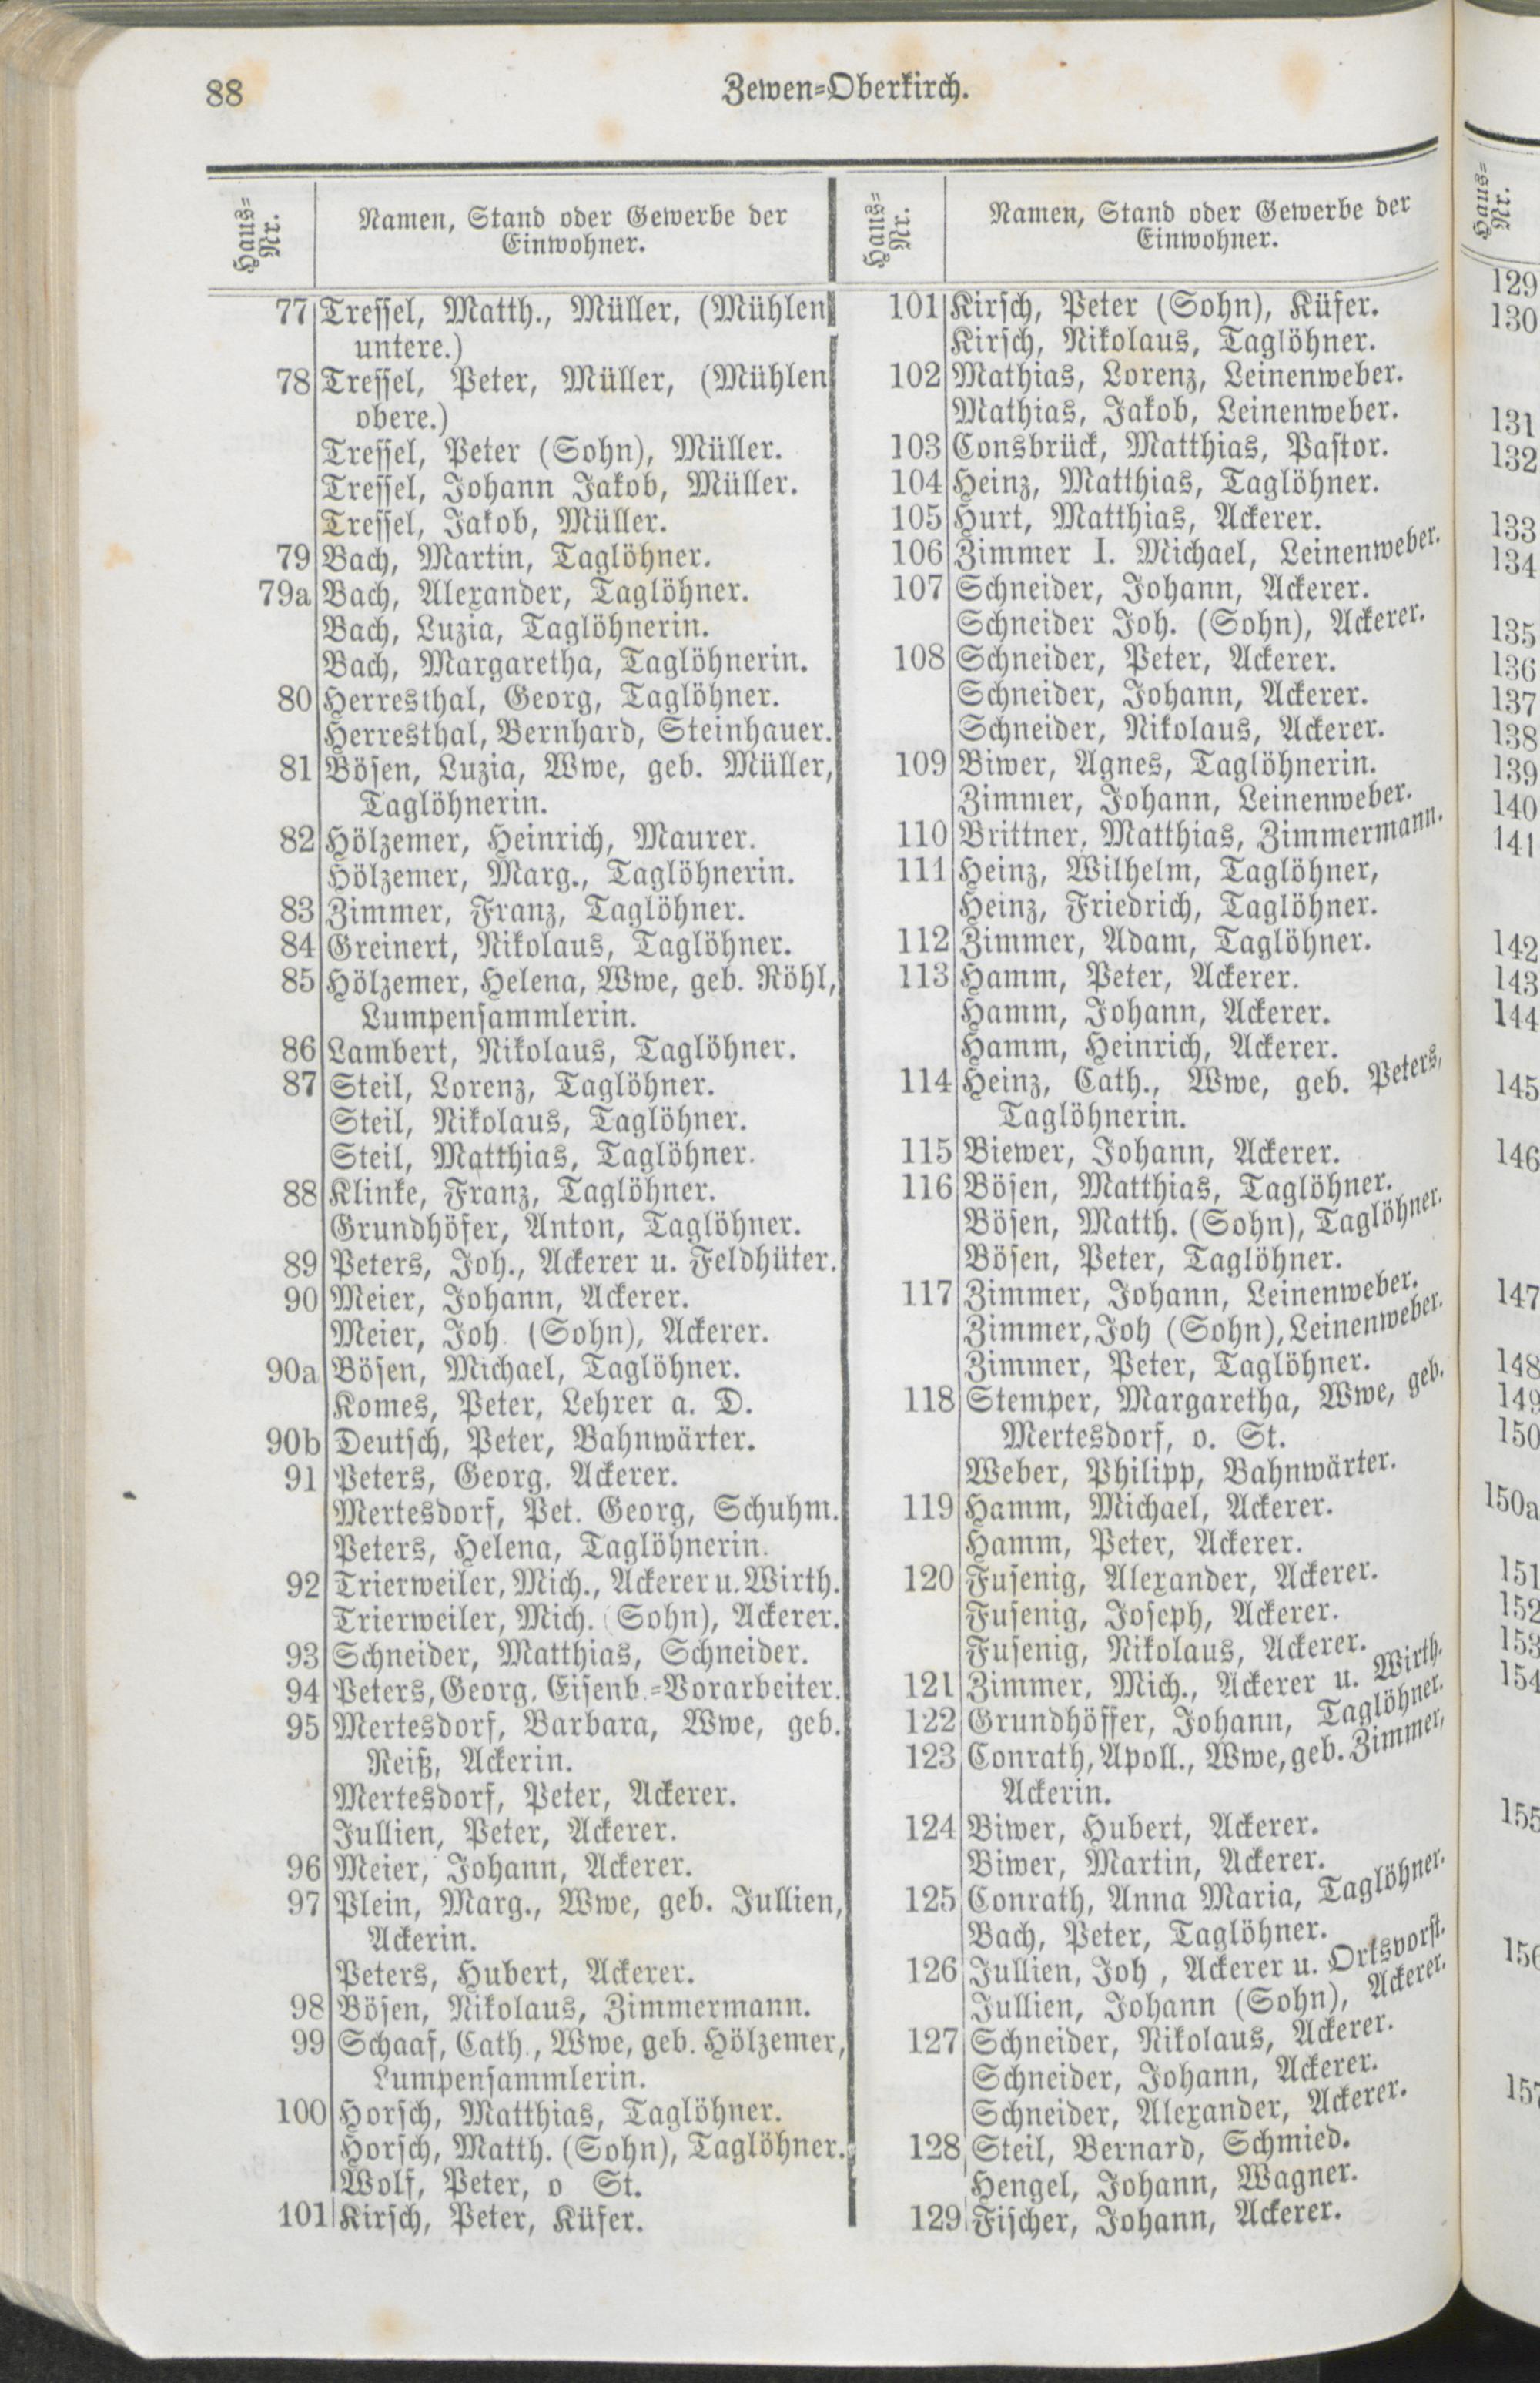 88
Zewen-Oberkirch.
Haus-
Nr.
Namen, Stand oder Gewerbe der
Einwohner.
77 Tressel, Matth., Müller, (Mühlen
untere.)
78 Tressel, Peter, Müller, (Mühlen
obere.)
Tressel, Peter (Sohn), Müller.
Tressel, Johann Jakob, Müller.
Tressel, Jakob, Müller.
79 Bach, Martin, Taglöhner.
79a Bach, Alexander, Taglöhner.
Bach, Luzia, Taglöhnerin.
Bach, Margaretha, Taglöhnerin.
80 Herresthal, Georg, Taglöhner.
Herresthal, Bernhard, Steinhauer.
81 Bösen, Luzia, Wwe, geb. Müller,
Taglöhnerin.
82 Hölzemer, Heinrich, Maurer.
Hölzemer, Marg., Taglöhnerin.
83 Zimmer, Franz, Taglöhner.
84 Greinert, Nikolaus, Taglöhner.
85 Hölzemer, Helena, Wwe, geb. Röhl,
Lumpensammlerin.
86 Lambert, Nikolaus, Taglöhner.
87 Steil, Lorenz, Taglöhner.
Steil, Nikolaus, Taglöhner.
Steil, Matthias, Taglöhner.
88 Klinke, Franz, Taglöhner.
Grundhöfer, Anton, Taglöhner.
89 Peters, Joh., Ackerer u. Feldhüter.
90 Meier, Johann, Ackerer.
Meier, Joh (Sohn), Ackerer.
90a Bösen, Michael, Taglöhner.
Komes, Peter, Lehrer a. D.
90b Deutsch, Peter, Bahnwärter.
91 Peters, Georg, Ackerer.
Mertesdorf, Pet. Georg, Schuhm.
Peters, Helena, Taglöhnerin.
92 Trierweiler, Mich., Ackerer u. Wirth.
Trierweiler, Mich. (Sohn), Ackerer.
93 Schneider, Matthias, Schneider.
94 Peters, Georg, Eisenb.-Vorarbeiter.
95 Mertesdorf, Barbara, Wwe, geb.
Reiß, Ackerin.
Mertesdorf, Peter, Ackerer.
Jullien, Peter, Ackerer.
96 Meier, Johann, Ackerer.
97 Plein, Marg., Wwe, geb. Jullien,
Ackerin.
Peters, Hubert, Ackerer.
98 Bösen, Nikolaus, Zimmermann.
99 Schaaf, Cath., Wwe, geb. Hölzemer,
Lumpensammlerin.
100 Horsch, Matthias, Taglöhner.
Horsch, Matth. (Sohn), Taglöhner.
Wolf, Peter, o St.
101 Kirsch, Peter, Küfer.
Haus-
Nr.
Namen, Stand oder Gewerbe der
Einwohner.
101 Kirsch, Peter (Sohn), Küfer.
Kirsch, Nikolaus, Taglöhner.
102 Mathias, Lorenz, Leinenweber.
Mathias, Jakob, Leinenweber.
103 Consbrück, Matthias, Pastor.
104 Heinz, Matthias, Taglöhner.
105 Hurt, Matthias, Ackerer.
106 Zimmer I. Michael, Leinenweber.
107 Schneider, Johann, Ackerer.
Schneider Joh. (Sohn), Ackerer.
108 Schneider, Peter, Ackerer.
Schneider, Johann, Ackerer.
Schneider, Nikolaus, Ackerer.
109 Biwer, Agnes, Taglöhnerin.
Zimmer, Johann, Leinenweber.
110 Brittner, Matthias, Zimmermann.
111 Heinz, Wilhelm, Taglöhner,
Heinz, Friedrich, Taglöhner.
112 Zimmer, Adam, Taglöhner.
113 Hamm, Peter, Ackerer.
Hamm, Johann, Ackerer.
Hamm, Heinrich, Ackerer.
114 Heinz, Cath., Wwe, geb. Peters,
Taglöhnerin.
115 Biewer, Johann, Ackerer.
116 Bösen, Matthias, Taglöhner.
Bösen, Matth. (Sohn), Taglöhner.
Bösen, Peter, Taglöhner.
117 Zimmer, Johann, Leinenweber.
Zimmer, Joh (Sohn), Leinenweber.
Zimmer, Peter, Taglöhner.
118 Stemper, Margaretha, Wwe, geb.
Mertesdorf, o. St.
Weber, Philipp, Bahnwärter.
119 Hamm, Michael, Ackerer.
Hamm, Peter, Ackerer.
120 Fusenig, Alexander, Ackerer.
Fusenig, Joseph, Ackerer.
Fusenig, Nikolaus, Ackerer.
121 Zimmer, Mich., Ackerer u. Wirth.
122 Grundhöffer, Johann, Taglöhner.
123 Conrath, Apoll., Wwe, geb. Zimmer,
Ackerin.
124 Biwer, Hubert, Ackerer.
Biwer, Martin, Ackerer.
125 Conrath, Anna Maria, Taglöhner.
Bach, Peter, Taglöhner.
126 Jullien, Joh, Ackerer u. Ortsvorst.
Jullien, Johann (Sohn), Ackerer.
127 Schneider, Nikolaus, Ackerer.
Schneider, Johann, Ackerer.
Schneider, Alexander, Ackerer.
128 Steil, Bernard, Schmied.
Hengel, Johann, Wagner.
129 Fischer, Johann, Ackerer.
Haus-
Nr.
129
130
131
132
133
134
135
136
137
138
139
140
141
142
143
144
145
146
147
148
149
150
150a
151
152
153
154
155
156
157